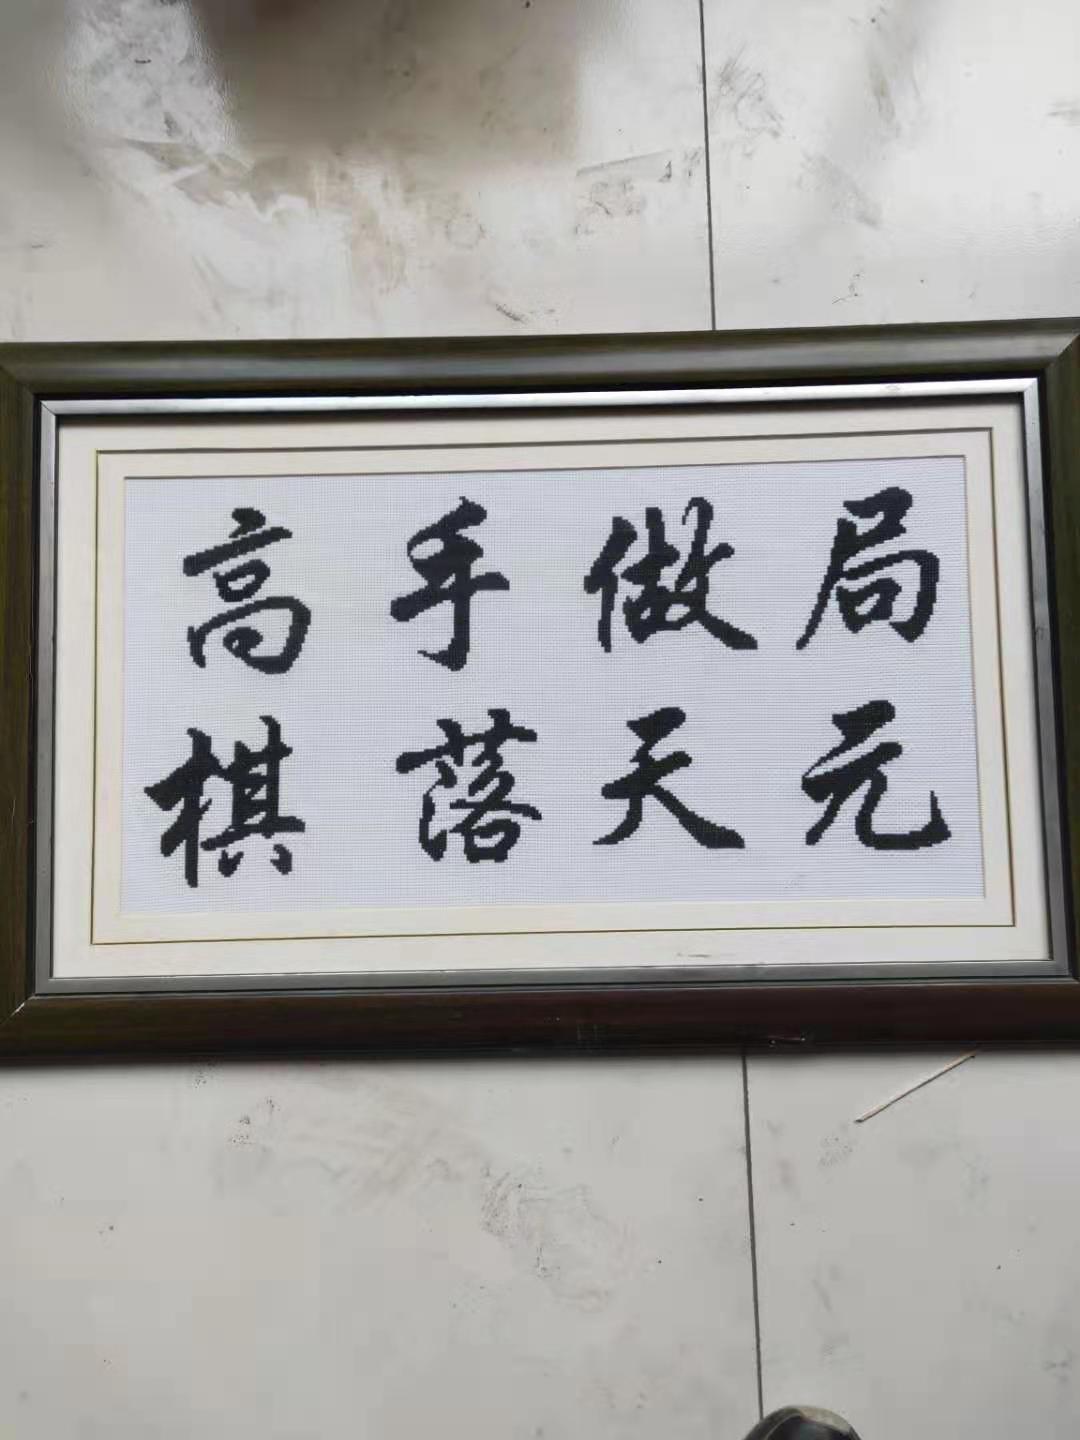 高手做局
棋落天元